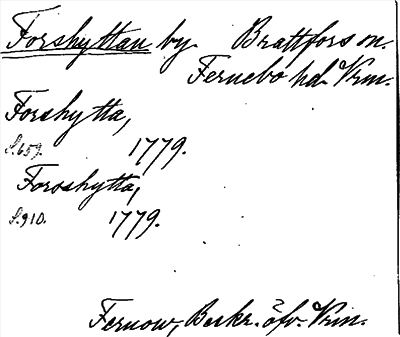 Forshyttan by Brattfors sn.
Fernebo hd. Vrm.
Forshytta,
S. 659. 1779.
Forsshytta,
S. 910. 1779.
Fernow, Beskr. öfv. Vrm.